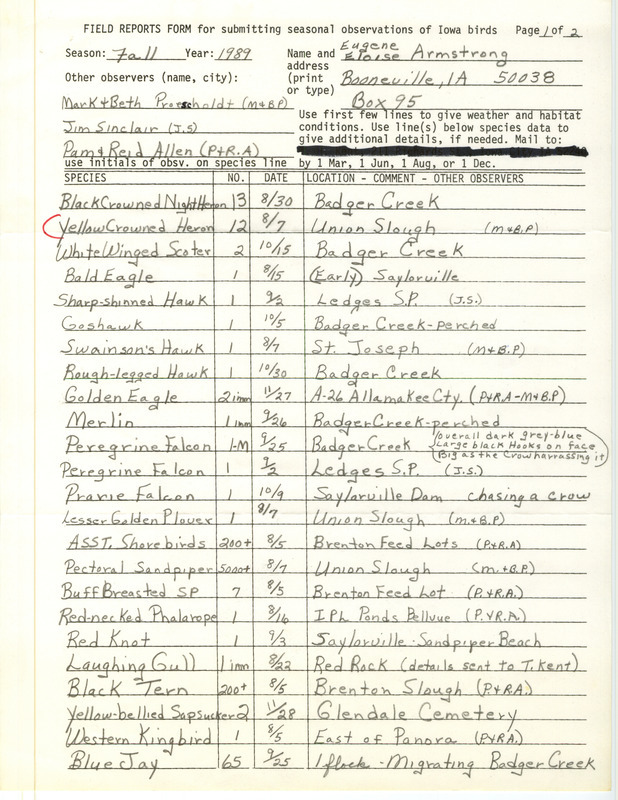 FIELD REPORTS FORM for submitting seasonal observations of Iowa birds Page 1 of 2
Season: Fall Year: 1989 Name and Eugene Eloise Armstrong
address
Other observers (name, city): (print Booneville, IA 50038
or type) Box 95
Mark & Beth Proescholdt (M&B.P)
Jim Sinclair (J.S)
Pam & Reid Allen (P&R.A)
Use first few lines to give weather and habitat
conditions. Use line(s) below species data to
give additional details, if needed. Mail to:
use initials of obsv. on species line by 1 Mar, 1 Jun, 1 Aug, or 1 Dec.
SPECIES NO. DATE LOCATION - COMMENT - OTHER OBSERVERS
Black Crowned Night Heron 13 8/30 Badger Creek
Yellow Crowned Heron 12 8/7 Union Slough (M&B.P)
White Winged Scoter 2 10/15 Badger Creek
Bald Eagle 1 8/15 (Early) Saylorville
Sharp-shinned Hawk 1 9/2 Ledges S.P. (J.S.)
Goshawk 1 10/5 Badger Creek-perched
Swainson's Hawk 1 8/7 St. Joseph (M&B.P)
Rough-legged Hawk 1 10/30 Badger Creek
Golden Eagle 2 imm 11/27 A-26 Allamakee Cty. (P&R.A-M&B.P)
Merlin 1 imm 9/26 Badger Creek-perched
Peregrine Falcon 1-M 9/25 Badger Creek (overall dark grey-blue
Large black Hooks on face
Big as the Crow harrassing it)
Peregrine Falcon 1 9/2 Ledges S.P. (J.S.)
Prarie Falcon 1 10/9 Saylorville Dam chasing a crow
Lesser Golden Plover 1 8/7 Union Slough (M&B.P)
ASST. Shorebirds 200+ 8/5 Brenton Feed Lots (P&R.A)
Pectoral Sandpiper 5000+ 8/7 Union Slough (M.&B.P)
Buff Breasted SP 7 8/5 Brenton Feed Lot (P.&R.A.)
Red-necked Phalarope 1 8/16 IPL Ponds Bellvue (P.&R.A.)
Red Knot 1 9/3 Saylorville-Sandpiper Beach
Laughing Gull 1 imm 8/22 Red Rock (details sent to T. Kent)
Black Tern 200+ 8/5 Brenton Slough (P&R.A.)
Yellow-bellied Sapsucker 2 11/28 Glendale Cemetery
Western Kingbird 1 8/5 East of Panora (P&R.A.)
Blue Jay 65 9/25 1 flock - Migrating Badger Creek